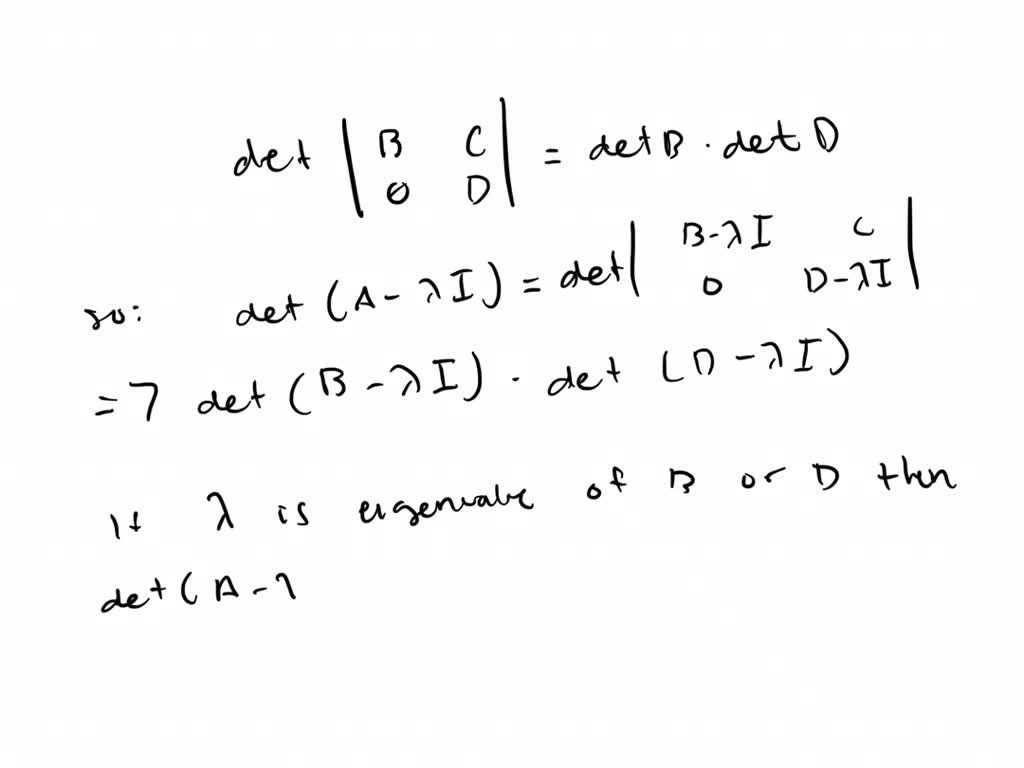 det | B C | = det B · det D
0 D
so: det (A - λI) = det | B-λI C |
0 D-λI
=7 det (B - λI) · det (D - λI)
If λ is eigenvalue of B or D then
det (A - λ